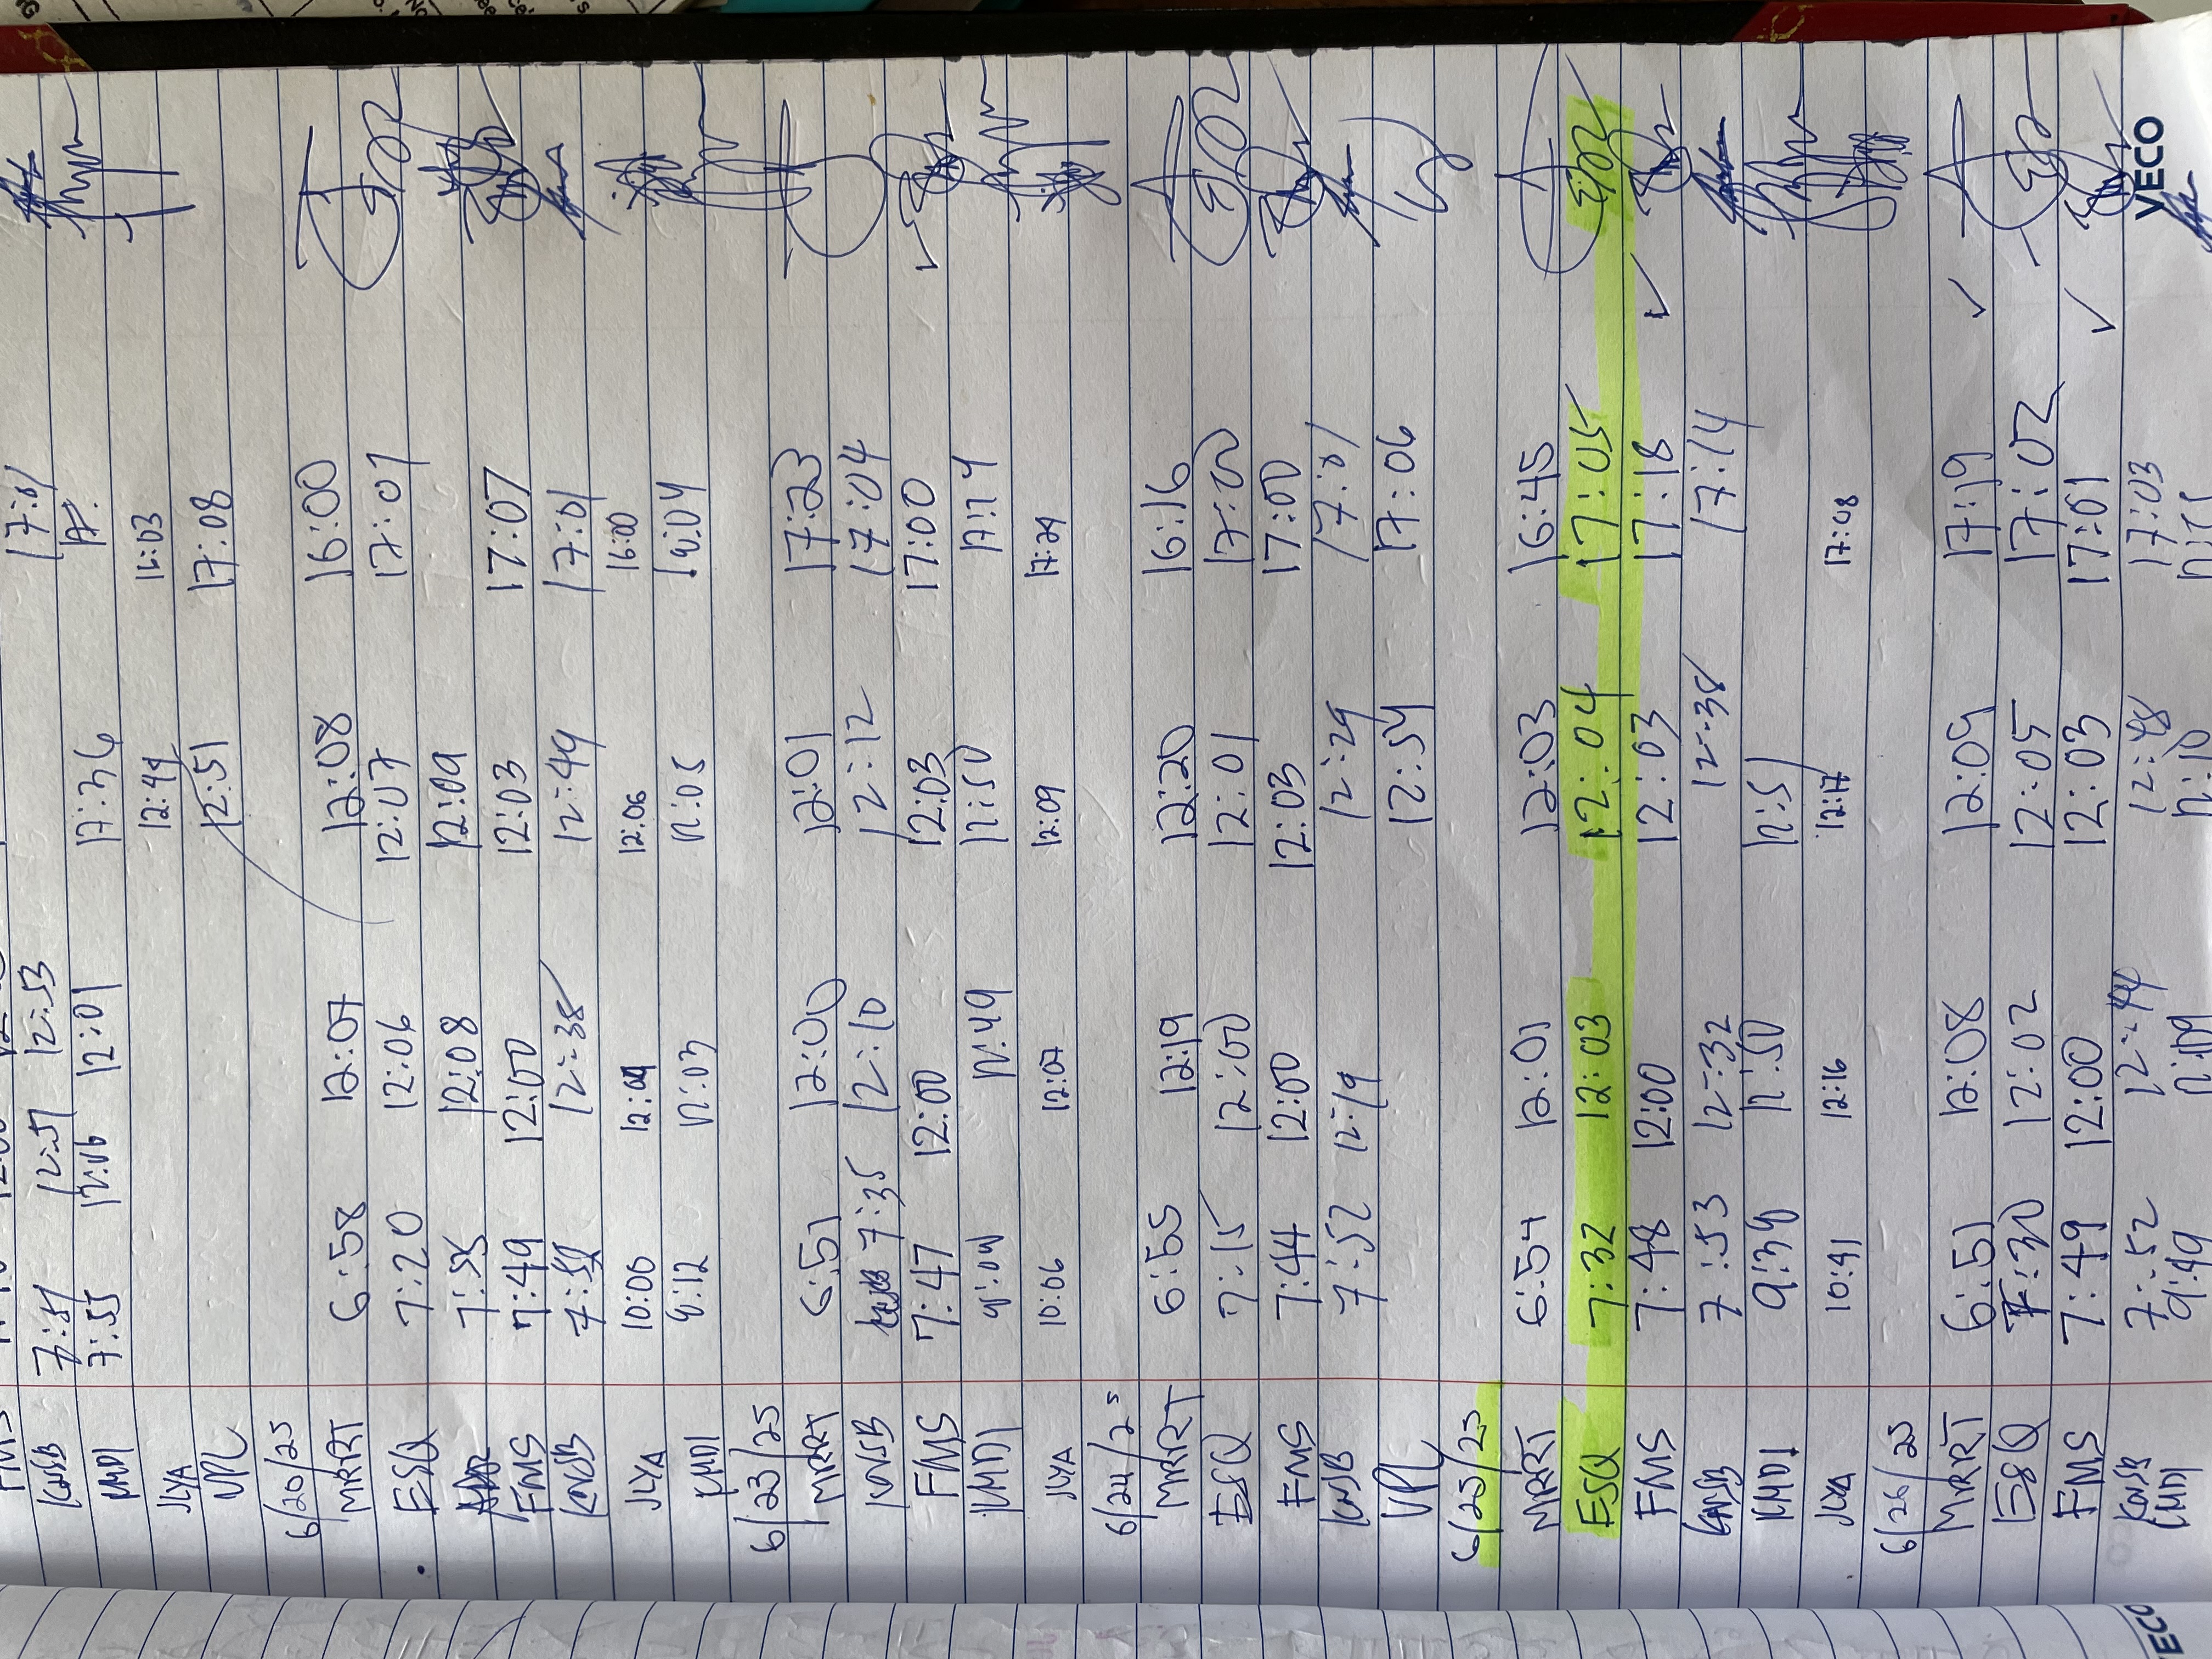 FMS
KWSB 7:51 12:51 12:53 17:01
KMDI 7:55 12:06 12:01 17:36 17.
JLYA 12:44 16:03
VPL 12:51 17:08
6/20/25
MRRT 6:58 12:07 12:08 16:00
ESQ 7:20 12:06 12:07 17:01
12:08 12:09
FMS 7:49 12:00 12:03 17:07
KWSB 12:38 12:49 17:01
JLYA 10:00 12:06 16:00
KMDI 12:03 12:05
6/23/25
MRRT 6:51 12:00 12:01 17:23
KWSB 7:35 12:10 12:12 17:04
FMS 7:47 12:00 12:03 17:00
KMDI 12:49 12:50 17:14
JLYA 10:06 12:07 12:09 17:24
6/24/25
MRRT 6:55 12:19 12:20 16:16
ESQ 7:15 12:00 12:01 17:00
FMS 7:44 12:00 12:03 17:00
KWSB 7:52 12:19 12:29 17:01
VPL 12:54 17:06
6/25/25
MRRT 6:54 12:01 12:03 16:45
ESQ 7:32 12:03 12:04 17:05
FMS 7:48 12:00 12:03 17:18
KWSB 7:53 12:32 12:38 17:14
KMDI 9:39 12:50 12:51
JLYA 10:41 12:16 12:17 17:08
6/26/25
MRRT 6:51 12:08 12:09 17:19
ESQ 7:30 12:02 12:05 17:02
FMS 7:49 12:00 12:03 17:01
KWSB 7:52 12:44 12:48 17:03
KMDI 9:49 12:09 12:10
VECO
VECO